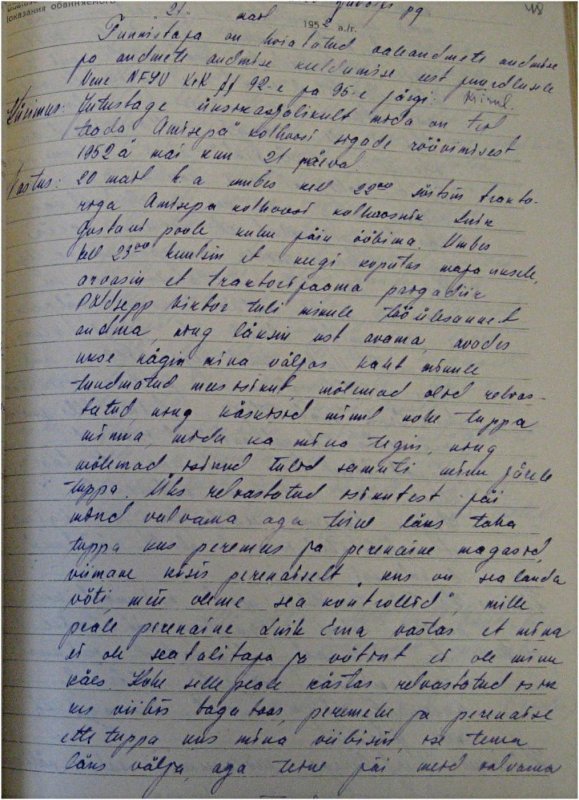 показания обвиняемого
21. mail
1952 a/г.
Tunnistaja on hoiatatud valeandmete andmise
ja andmete andmise keeldumise eest juurdlusele
Vene NFSV KrK §§ 92-e ja 95-e järgi.
Küsimus: Jutustage üksikasjalikult mida on Teil
teada "Amisepa" kolhoosi sigade röövimisest
1952 a mai kuu 21 päeval.
Vastus: 20 mail k.a umbes kell 22⁰⁰ sõitsin trakto-
riga Amisepa kolhoosi kolhoosnik Luik
Gustavi poole kuhu jäin ööbima. Umbes
kell 23⁰⁰ kuulsin et keegi koputas maja uksele,
arvasin et traktorijaama
Viktor tuli minule tööülesannet
andma, ning läksin ust avama, avades
ukse nägin mina väljas kaht minule
tundmatud meesisikut, mõlemad olid relvas-
tatud, ning käskisid minul kohe tuppa
minna, mida ka mina tegin, ning
mõlemad isikud tulid samuti minu järele
tuppa. Üks relvastatud isikutest jäi
mind valvama aga teine läks taha
tuppa kus peremees ja perenaine magasid,
viimane küsis perenaiselt "kus on sealauda
võti, meie oleme sea kontrollid", mille
peale perenaine Luik Erna vastas et mina
ei ole seatalitaja ja võtit ei ole minu
käes. Kohe selle peale käskis relvastatud isik
kes viibis taga toas, peremehe ja perenaise
ette tuppa kus mina viibisin, ise tema
läks välja, aga teine jäi meid valvama